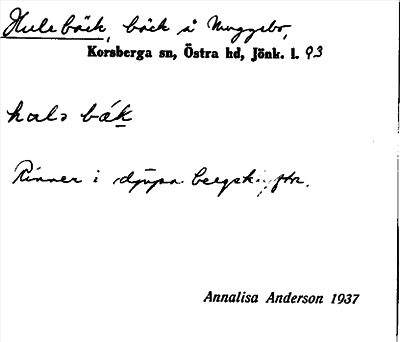 Hulebäck, bäck å Muggebo,
Korsberga sn, Östra hd, Jönk. l. 93
bäk
Rinner i djupa
Annalisa Anderson 1937